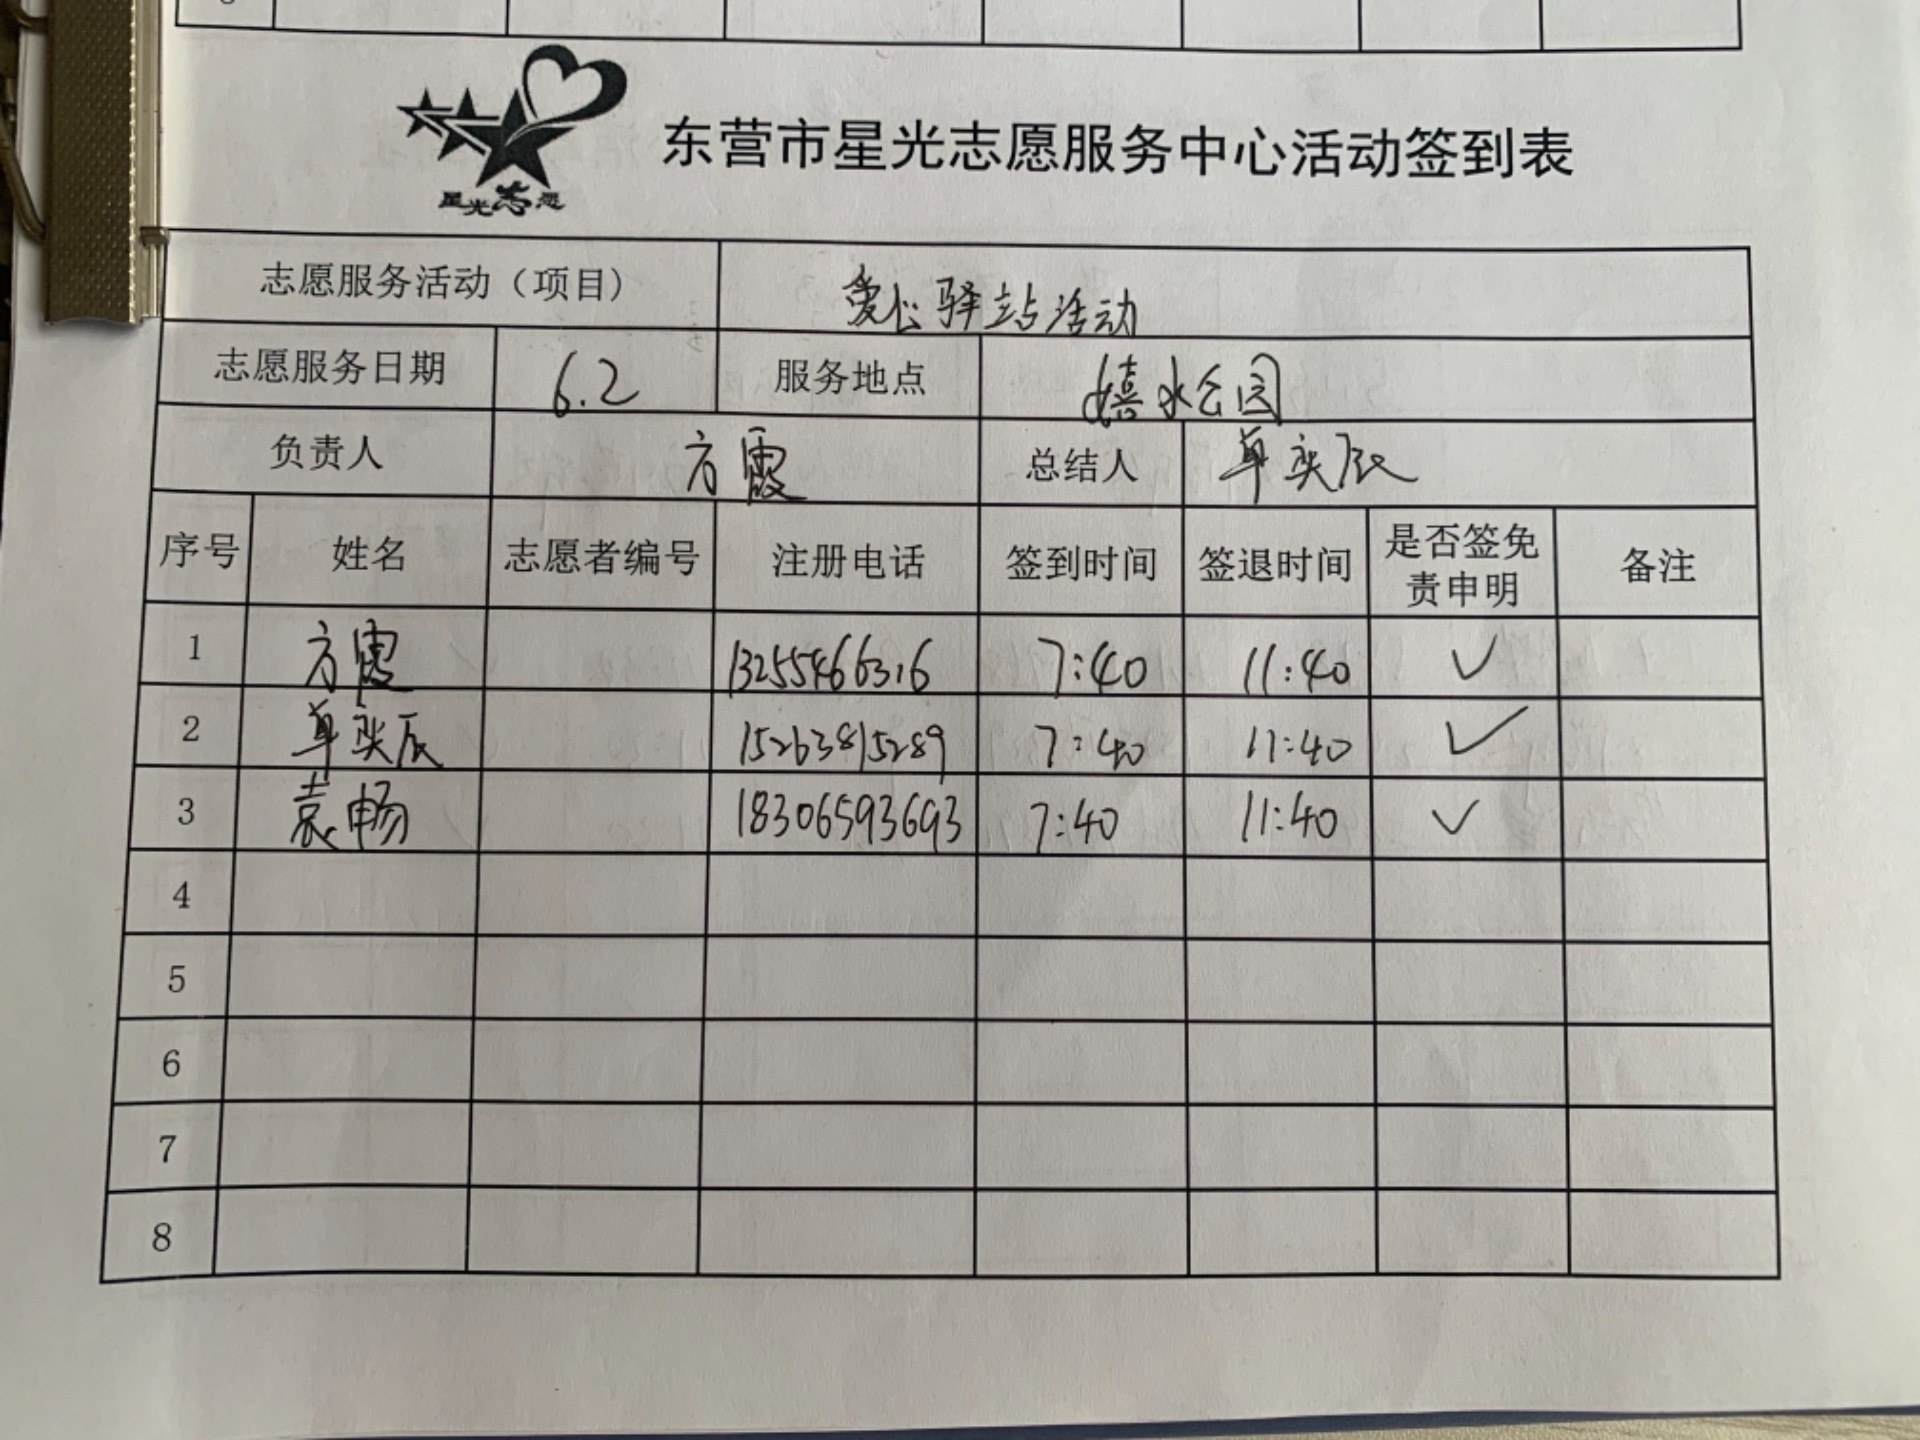 星光志愿
东营市星光志愿服务中心活动签到表
志愿服务活动（项目） 爱心驿站活动
志愿服务日期 6.2 服务地点 嬉水公园
负责人 方霞 总结人
序号 姓名 志愿者编号 注册电话 签到时间 签退时间 是否签免责申明 备注
1 方霞 13255466316 7:40 11:40 ✓
2 15263815289 7:40 11:40 ✓
3 袁畅 18306593693 7:40 11:40 ✓
4
5
6
7
8